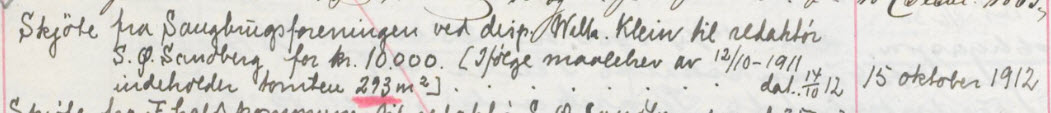 Skjöte fra Saugbrugsforeningen ved disp. Wilh. Klein til redaktör
S. Ø. Sandberg for kr. 10.000. [Ifölge maalebrev av 12/10-1911
indeholder tomten 293 m²] . . . . . . . dat. 14/10 12 15 oktober 1912